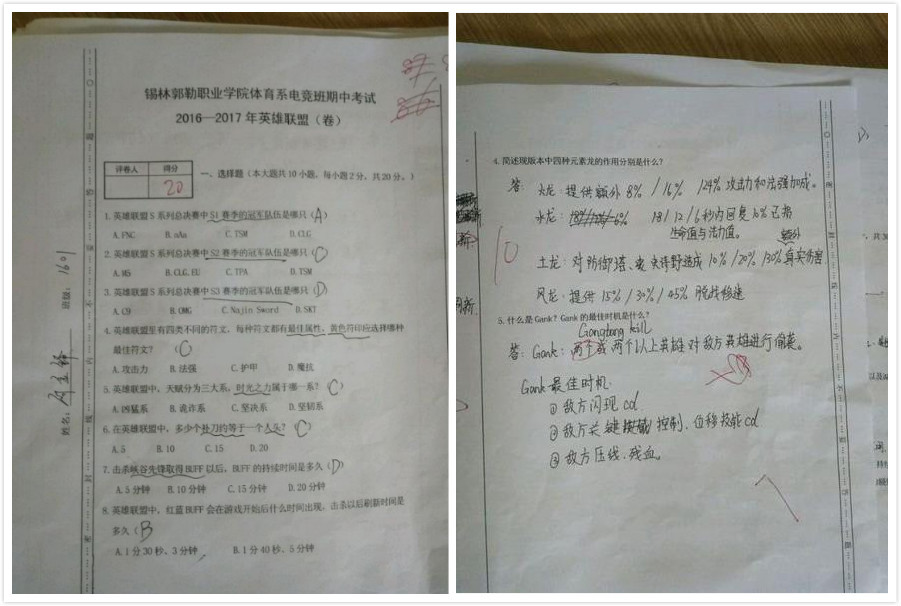 锡林郭勒职业学院体育系电竞班期中考试
2016—2017年英雄联盟（卷）
评卷人 得分
20
一、选择题（本大题共10小题，每小题2分，共20分。）
1. 英雄联盟S系列总决赛中S1赛季的冠军队伍是哪只（A）
A. FNC B. aAa C. TSM D. CLG
2. 英雄联盟S系列总决赛中S2赛季的冠军队伍是哪只（C）
A. M5 B. CLG.EU C. TPA D. TSM
3. 英雄联盟S系列总决赛中S3赛季的冠军队伍是哪只（D）
A. C9 B. OMG C. Najin Sword D. SKT
4. 英雄联盟里有四类不同的符文，每种符文都有最佳属性，黄色符印应选择哪种
最佳符文？（C）
A. 攻击力 B. 法强 C. 护甲 D. 魔抗
5. 英雄联盟中，天赋分为三大系，时光之力属于哪一系？（C）
A. 凶猛系 B. 诡诈系 C. 坚决系 D. 坚韧系
6. 在英雄联盟中，多少个补刀约等于一个人头？（C）
A. 5 B. 10 C. 15 D. 20
7. 击杀峡谷先锋取得BUFF以后，BUFF的持续时间是多久（D）
A. 5分钟 B. 10分钟 C. 15分钟 D. 20分钟
8. 英雄联盟中，红蓝BUFF会在游戏开始后什么时间出现，击杀以后刷新时间是
多久（B）
A. 1分30秒、3分钟 B. 1分40秒、5分钟
班级：1601
姓名：
4. 简述现版本中四种元素龙的作用分别是什么？
答：火龙：提供额外8% / 16% / 24% 攻击力和法强加成。
水龙： 18 / 12 / 6秒内回复10%已损
生命值与法力值。 额外
土龙：对防御塔、史诗野造成10% / 20% / 30%真实伤害
风龙：提供15% / 30% / 45% 脱战移速
10
5. 什么是Gank？Gank的最佳时机是什么？
Gangbang kill
答：Gank：两个或两个以上英雄对敌方英雄进行偷袭。
Gank最佳时机：
①敌方闪现cd
②敌方关键 控制、位移技能cd
③敌方压线、残血。